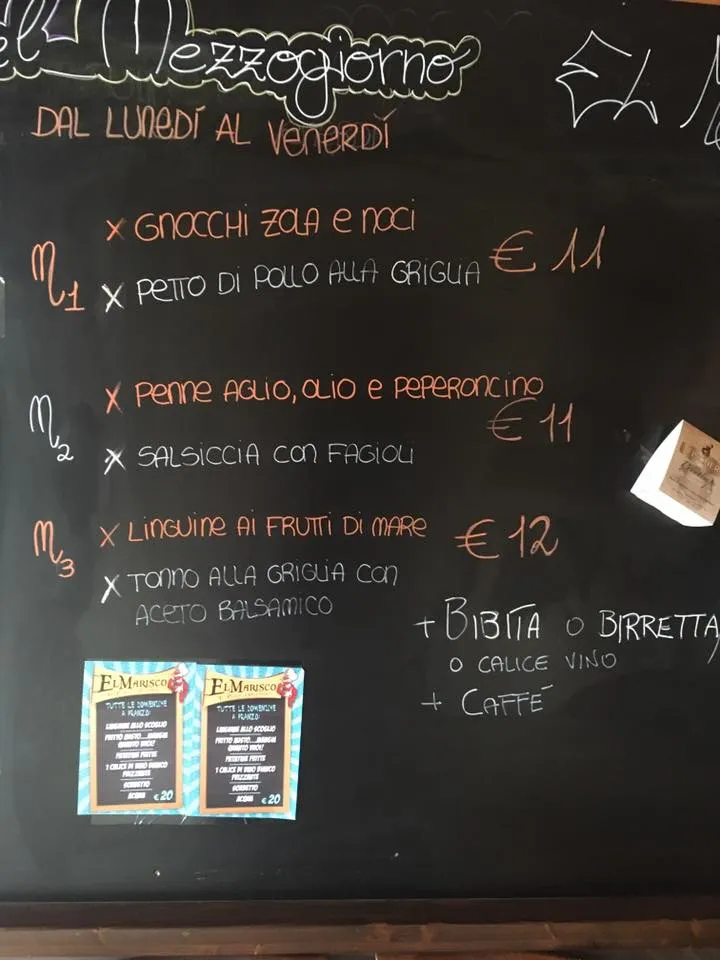 el Mezzogiorno
EL
DAL LUNEDÍ AL VENERDÍ
M1
X GNOCCHI ZOLA E NOCI
€ 11
X PETTO DI POLLO ALLA GRIGLIA
M2
X PENNE AGLIO, OLIO E PEPERONCINO
€ 11
X SALSICCIA CON FAGIOLI
M3
X LINGUINE AI FRUTTI DI MARE
€ 12
X TONNO ALLA GRIGLIA CON
ACETO BALSAMICO
+ BIBITA O BIRRETTA
O CALICE VINO
+ CAFFÉ
EL MARISCO
TUTTE LE DOMENICHE
A PRANZO:
LINGUINE ALLO SCOGLIO
FRITTO MISTO....MANGIA
QUANTO VUOI!
PATATINE FRITTE
1 CALICE DI VINO BIANCO
FRIZZANTE
SORBETTO
ACQUA
€ 20
EL MARISCO
TUTTE LE DOMENICHE
A PRANZO:
LINGUINE ALLO SCOGLIO
FRITTO MISTO....MANGIA
QUANTO VUOI!
PATATINE FRITTE
1 CALICE DI VINO BIANCO
FRIZZANTE
SORBETTO
ACQUA
€ 20